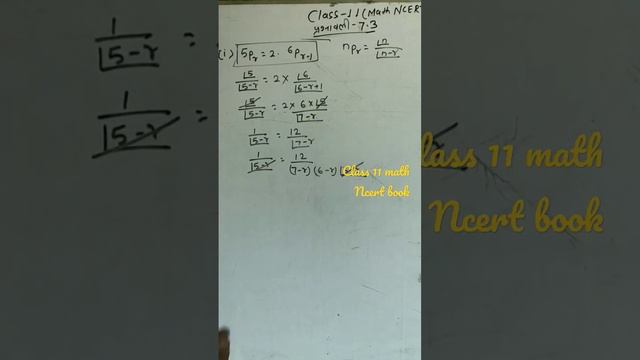 Class-11 (Math NCERT
प्रश्नावली-7.3
(i) 5Pr = 2. 6Pr-1
nPr = ⌊n / ⌊n-r
⌊5 / ⌊5-r = 2 × ⌊6 / ⌊6-r+1
⌊5 / ⌊5-r = 2 × 6 × ⌊5 / ⌊7-r
1 / ⌊5-r = 12 / ⌊7-r
1 / ⌊5-r = 12 / (7-r) (6-r)
Class 11 math
Ncert book
1 / ⌊5-r =
1 / ⌊5-r =